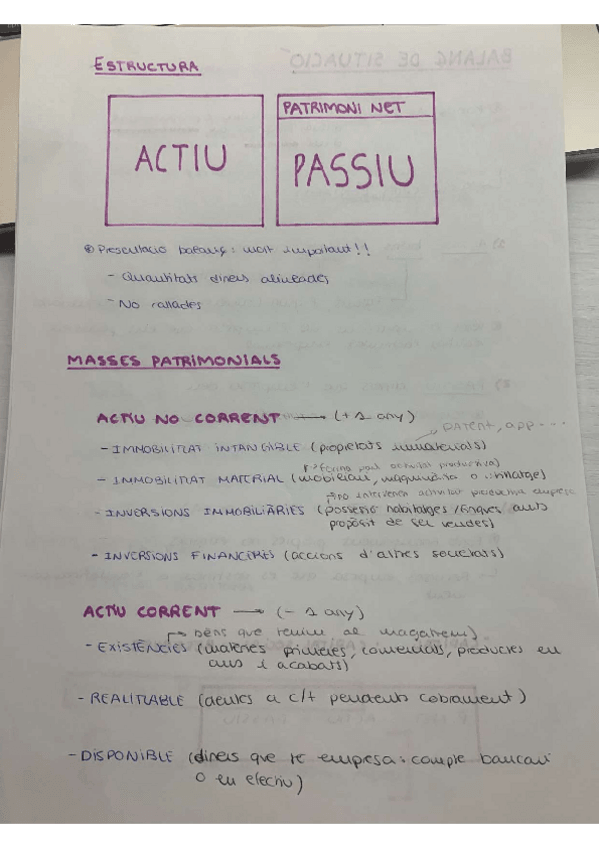 ESTRUCTURA
ACTIU
PATRIMONI NET
PASSIU
Presentació balanç: molt important!!
- Quantitats diners alineades
- No rallades
MASSES PATRIMONIALS
ACTIU NO CORRENT → (+1 any)
patent, app...
- IMMOBILITAT INTANGIBLE (propietats immaterials)
forma part activitat productiva)
- IMMOBILITAT MATERIAL (mobiliari, maquinària o utillatge)
no intervenen activitat productiva empresa
- INVERSIONS IMMOBILIÀRIES (possessió habitatges/finques amb
propòsit de ser venudes)
- INVERSIONS FINANCERES (accions d'altres societats)
ACTIU CORRENT → (-1 any)
béns que tenim al magatzem)
- EXISTÈNCIES (matèries primeres, comercials, productes en
curs i acabats)
- REALITZABLE (deutes a c/t pendents cobrament)
- DISPONIBLE (diners que té empresa: compte bancari
o en efectiu)